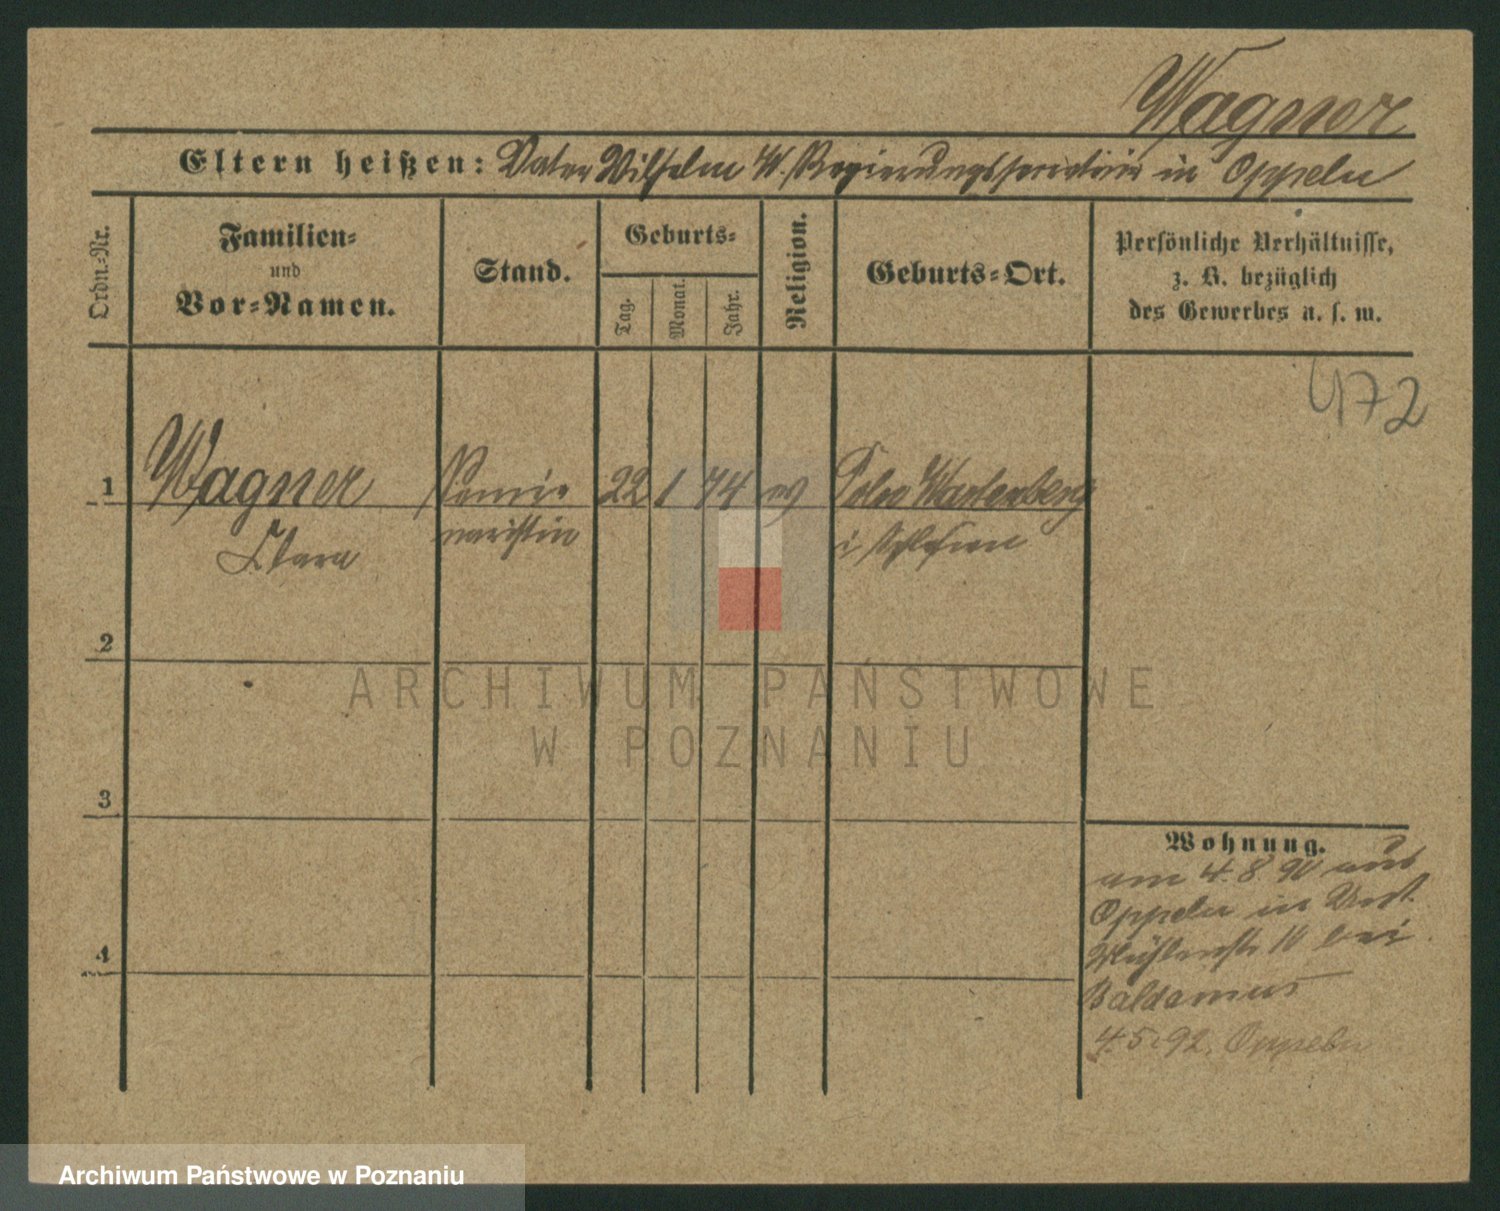 Wagner
Eltern heißen: Vater Wilhelm W. Regierungssecretär in Oppeln
Ordn.-Nr.
Familien-
und
Vor-Namen.
Stand.
Geburts-
Tag.
Monat.
Jahr.
Religion.
Geburts-Ort.
Persönliche Verhältnisse,
z. B. bezüglich
des Gewerbes u. s. w.
472
1 Wagner Semi- 22 1 74 Poln Wartenberg
Clara naristin i Schlesien
2
ARCHIWUM PAŃSTWOWE
W POZNANIU
3
4
Wohnung.
am 4. 8. 90 aus
Oppeln in
Mühlenstr. 16 bei
Baldamus
4. 5. 92. Oppeln
Archiwum Państwowe w Poznaniu